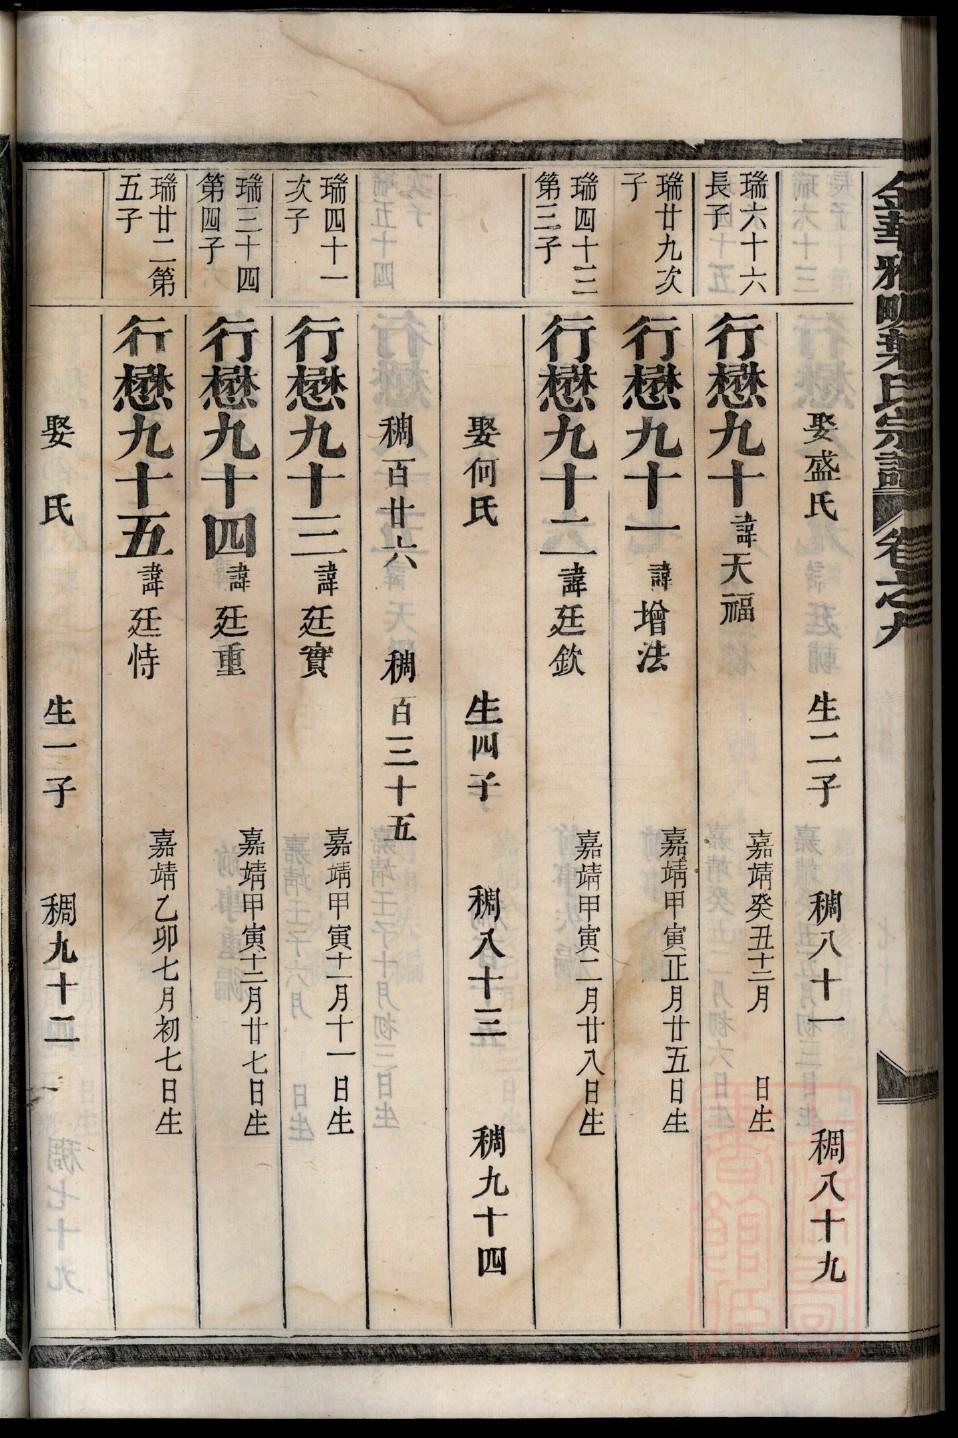 金華雅畈葉氏宗譜 卷之九
娶盛氏 生二子 稠八十一 稠八十九
瑞六十六長子
行懋九十 諱天福 嘉靖癸丑十二月 日生
瑞廿九次子
行懋九十一 諱增法 嘉靖甲寅正月廿五日生
瑞四十三第三子
行懋九十二 諱廷欽 嘉靖甲寅二月廿八日生
娶何氏 生四子 稠八十三 稠九十四
稠百廿六 稠百三十五
瑞四十一次子
行懋九十三 諱廷實 嘉靖甲寅十一月十一日生
瑞三十四第四子
行懋九十四 諱廷重 嘉靖甲寅十二月廿七日生
瑞廿二第五子
行懋九十五 諱廷恃 嘉靖乙卯七月初七日生
娶 氏 生一子 稠九十二